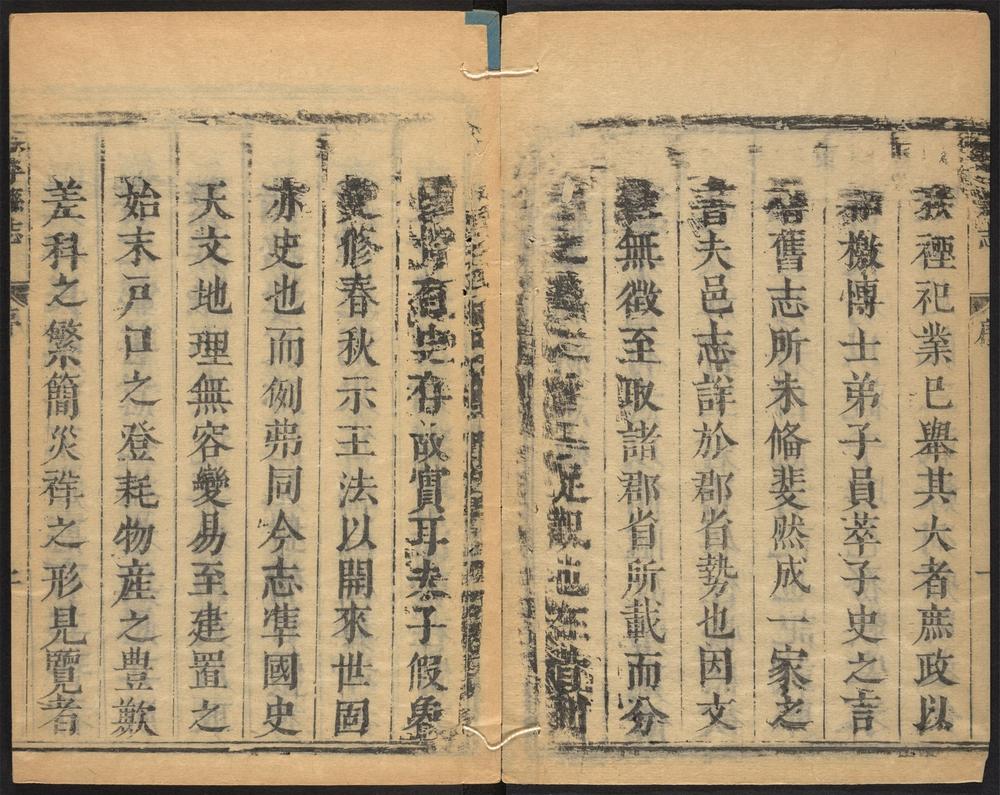 秩禋祀業已舉其大者庶政以
檄博士弟子員萃子史之言
舊志所未俻斐然成一家之
書夫邑志詳於郡省勢也因文
無徵至取諸郡省所載而分
之 足觀也
有史存故實耳夫子假魯
史修春秋示王法以開來世固
亦史也而例弗同今志準國史
天文地理無容變易至建置之
始末戸口之登耗物産之豊歉
差科之繁簡災祥之形見覽者
志
序
一